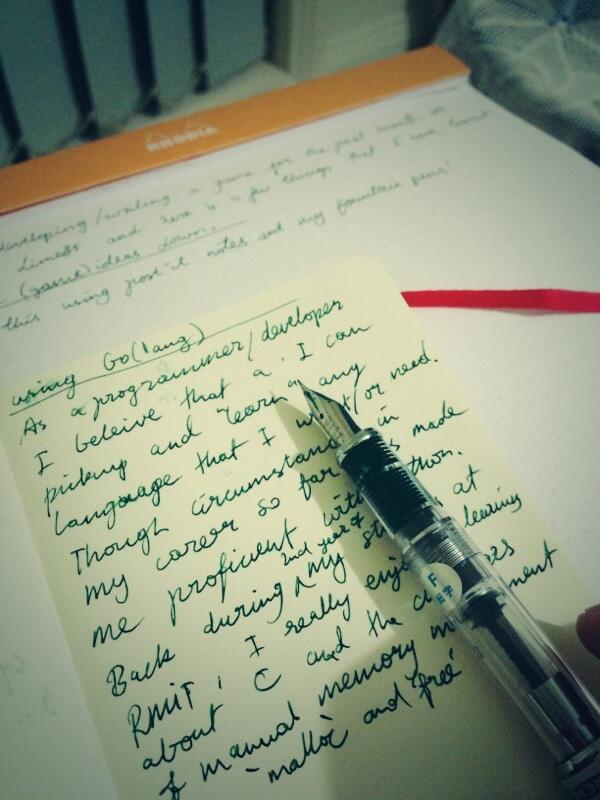 RHODIA
developing/writing a game for the past month or
times and here is a few things that I have learnt
(game) ideas down.
this using post-it notes and my fountain pens'
using Go(lang)
As a programmer/developer
I beleive that a. I can
pickup and "learn" any
language that I want/or need.
Though circumstances in
my career so far has made
me proficient with
Back during 2nd year of my at
RMIT, I really learning
about C and the
of manual memory
- malloc and free
F